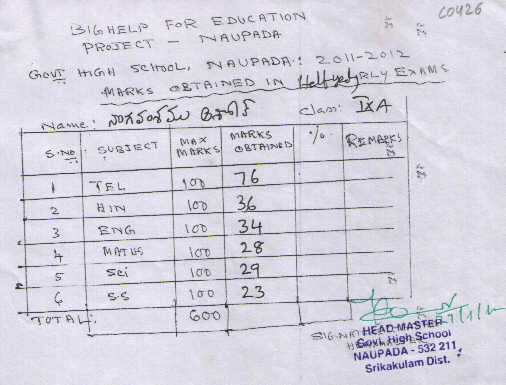 C0426
BIGHELP FOR EDUCATION
PROJECT - NAUPADA
GOVT HIGH SCHOOL, NAUPADA: 2011-2012
MARKS OBTAINED IN Halfyearly EXAMS
Name: class: IX A
S.NO SUBJECT MAX MARKS MARKS OBTAINED % REMARKS
1 TEL 100 76
2 HIN 100 36
3 ENG 100 34
4 MATHS 100 28
5 SCI 100 29
6 S.S 100 23
TOTAL: 600
HEAD MASTER
Govt. High School
NAUPADA - 532 211
Srikakulam Dist.